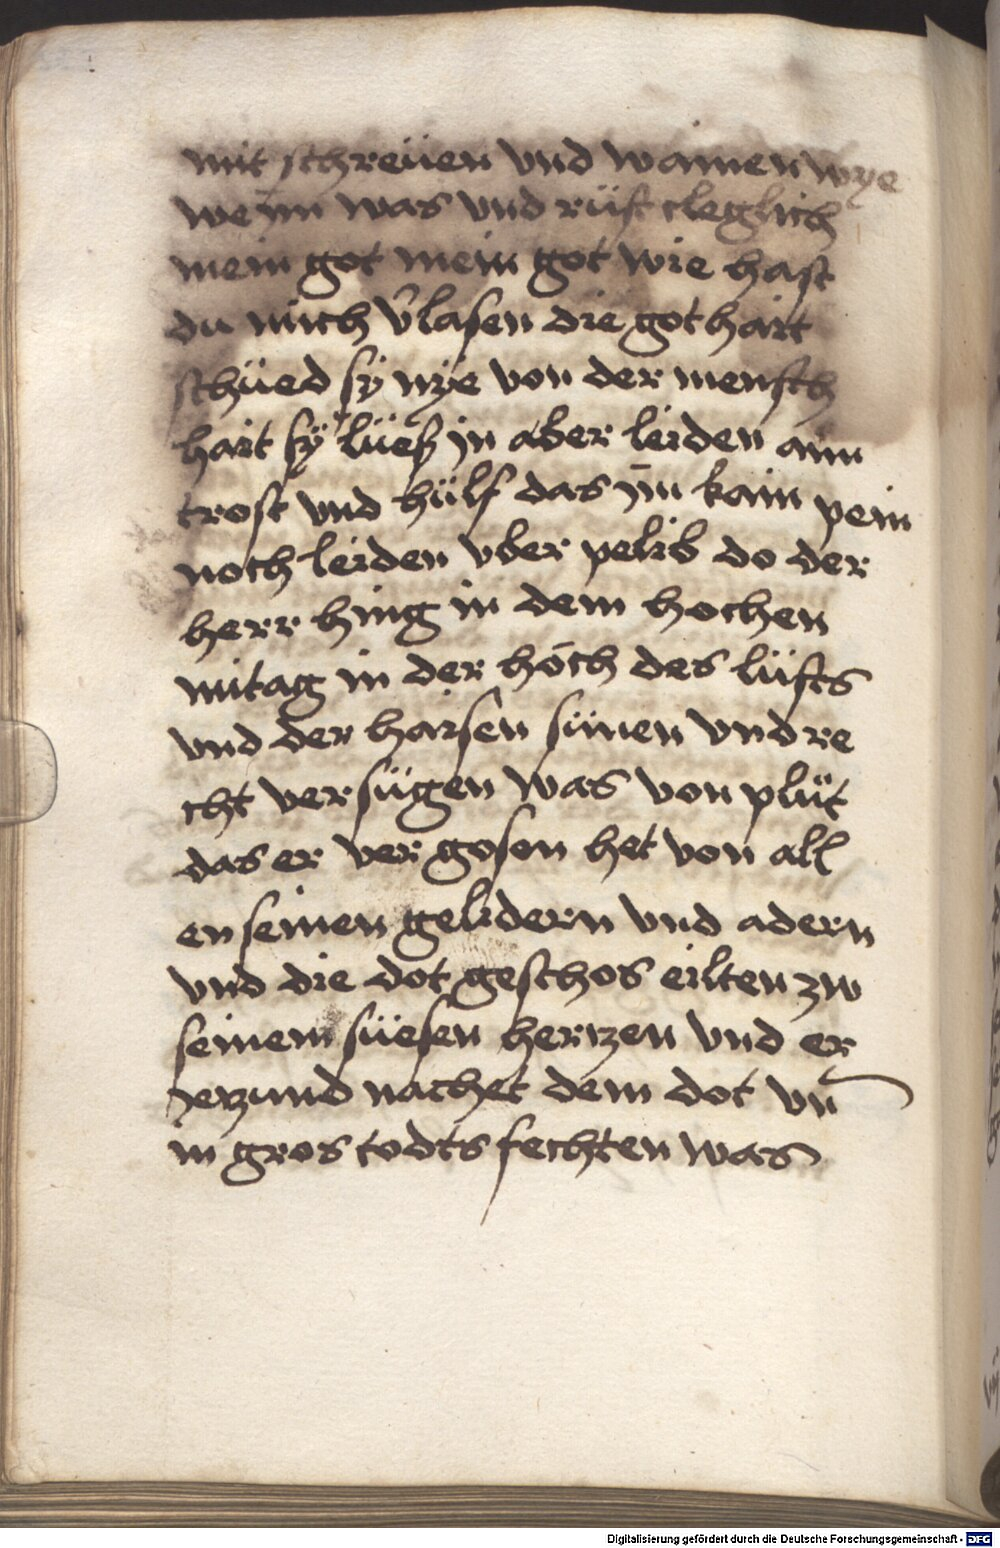 mit schreüen vnd wainen wye
we im was vnd rüft cleglich
mein got mein got wie hast
du mich v̾lasen die got hait
schüed sÿ nÿe von der mensch
hait sÿ lüeß in aber leiden ann
trost vnd hülf das im kain pein
noch leiden vber pelib do der
herr hing in dem hochen
mitag in der höch des lüfts
vnd der haisen sünen vnd re
cht versügen was von plüt
das er vergosen het von all
en seinen gelidern vnd adern
vnd die dot geschos eilten zw
seinem süesen hertzen vnd er
yetzund nachet dem dot vn̄
in gros todts fechten was
Digitalisierung gefördert durch die Deutsche Forschungsgemeinschaft - DFG